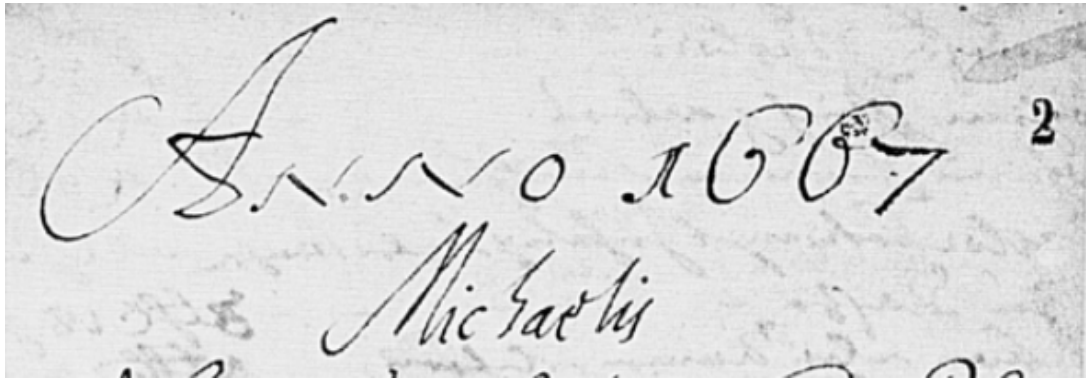 Anno 1667 2
Michaelis